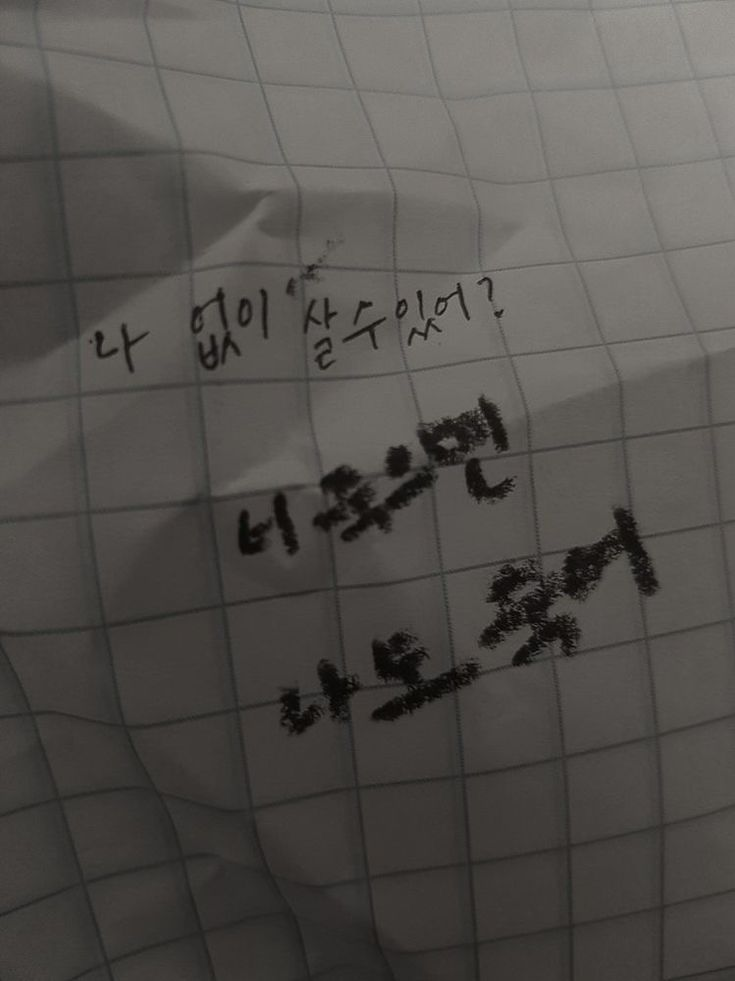 나 없이 살 수 있어?
너 죽으면
나도 죽어